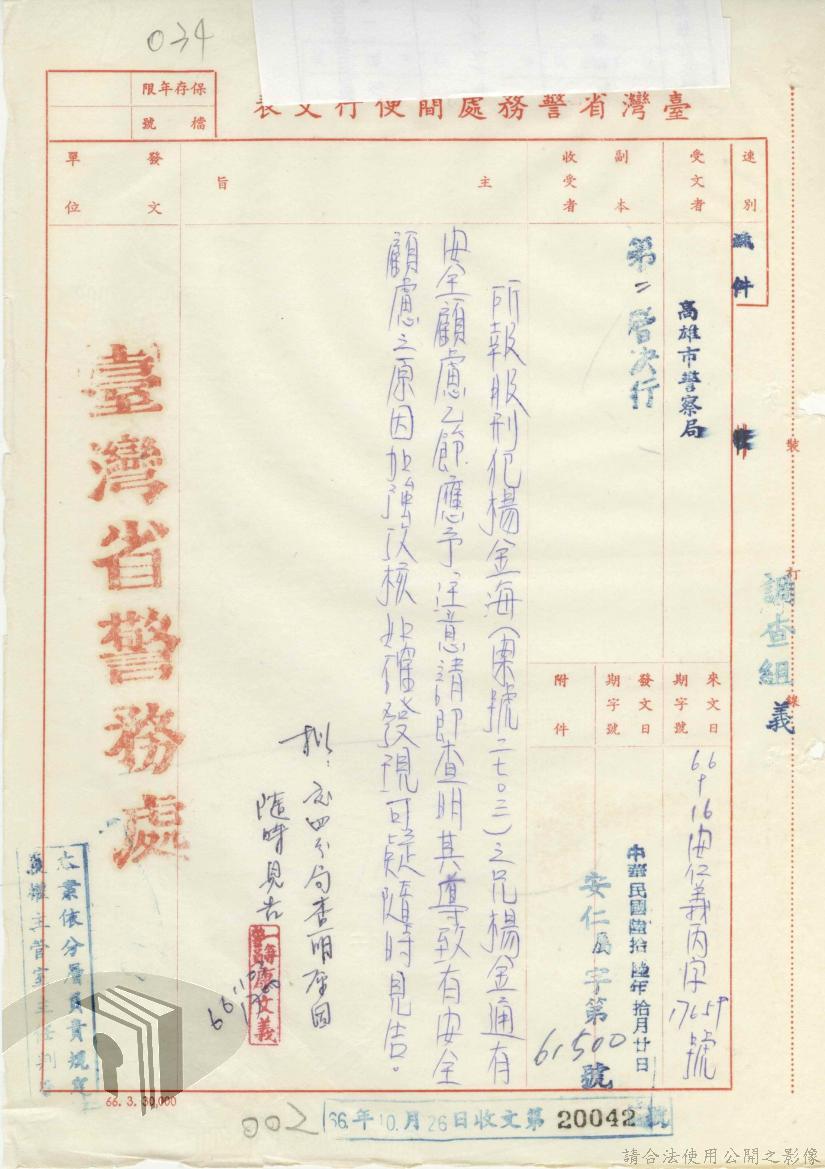 034
臺灣省警務處簡便行文表
保存年限
檔號
速別
受文者
高雄市警察局
副本收受者
第二層決行
來文日期字號
66 16安仁義丙字17659號
發文日期字號
中華民國陸拾陸年拾月廿日
安仁 字第61500號
附件
主旨
所報服刑犯楊金海(案號二七〇三)之兄楊金通有
安全顧慮乙節應予注意請即查明其導致有安全
顧慮之原因加強 核如確發現可疑隨時見告。
擬:交四分局查明原因
隨時見告
發文單位
臺灣省警務處
本案依分層負責規定
授權主管室主任判
調查組
義
裝
訂
線
66. 3. 30,000
002
66.年10.月26日收文第20042號
請合法使用公開之影像